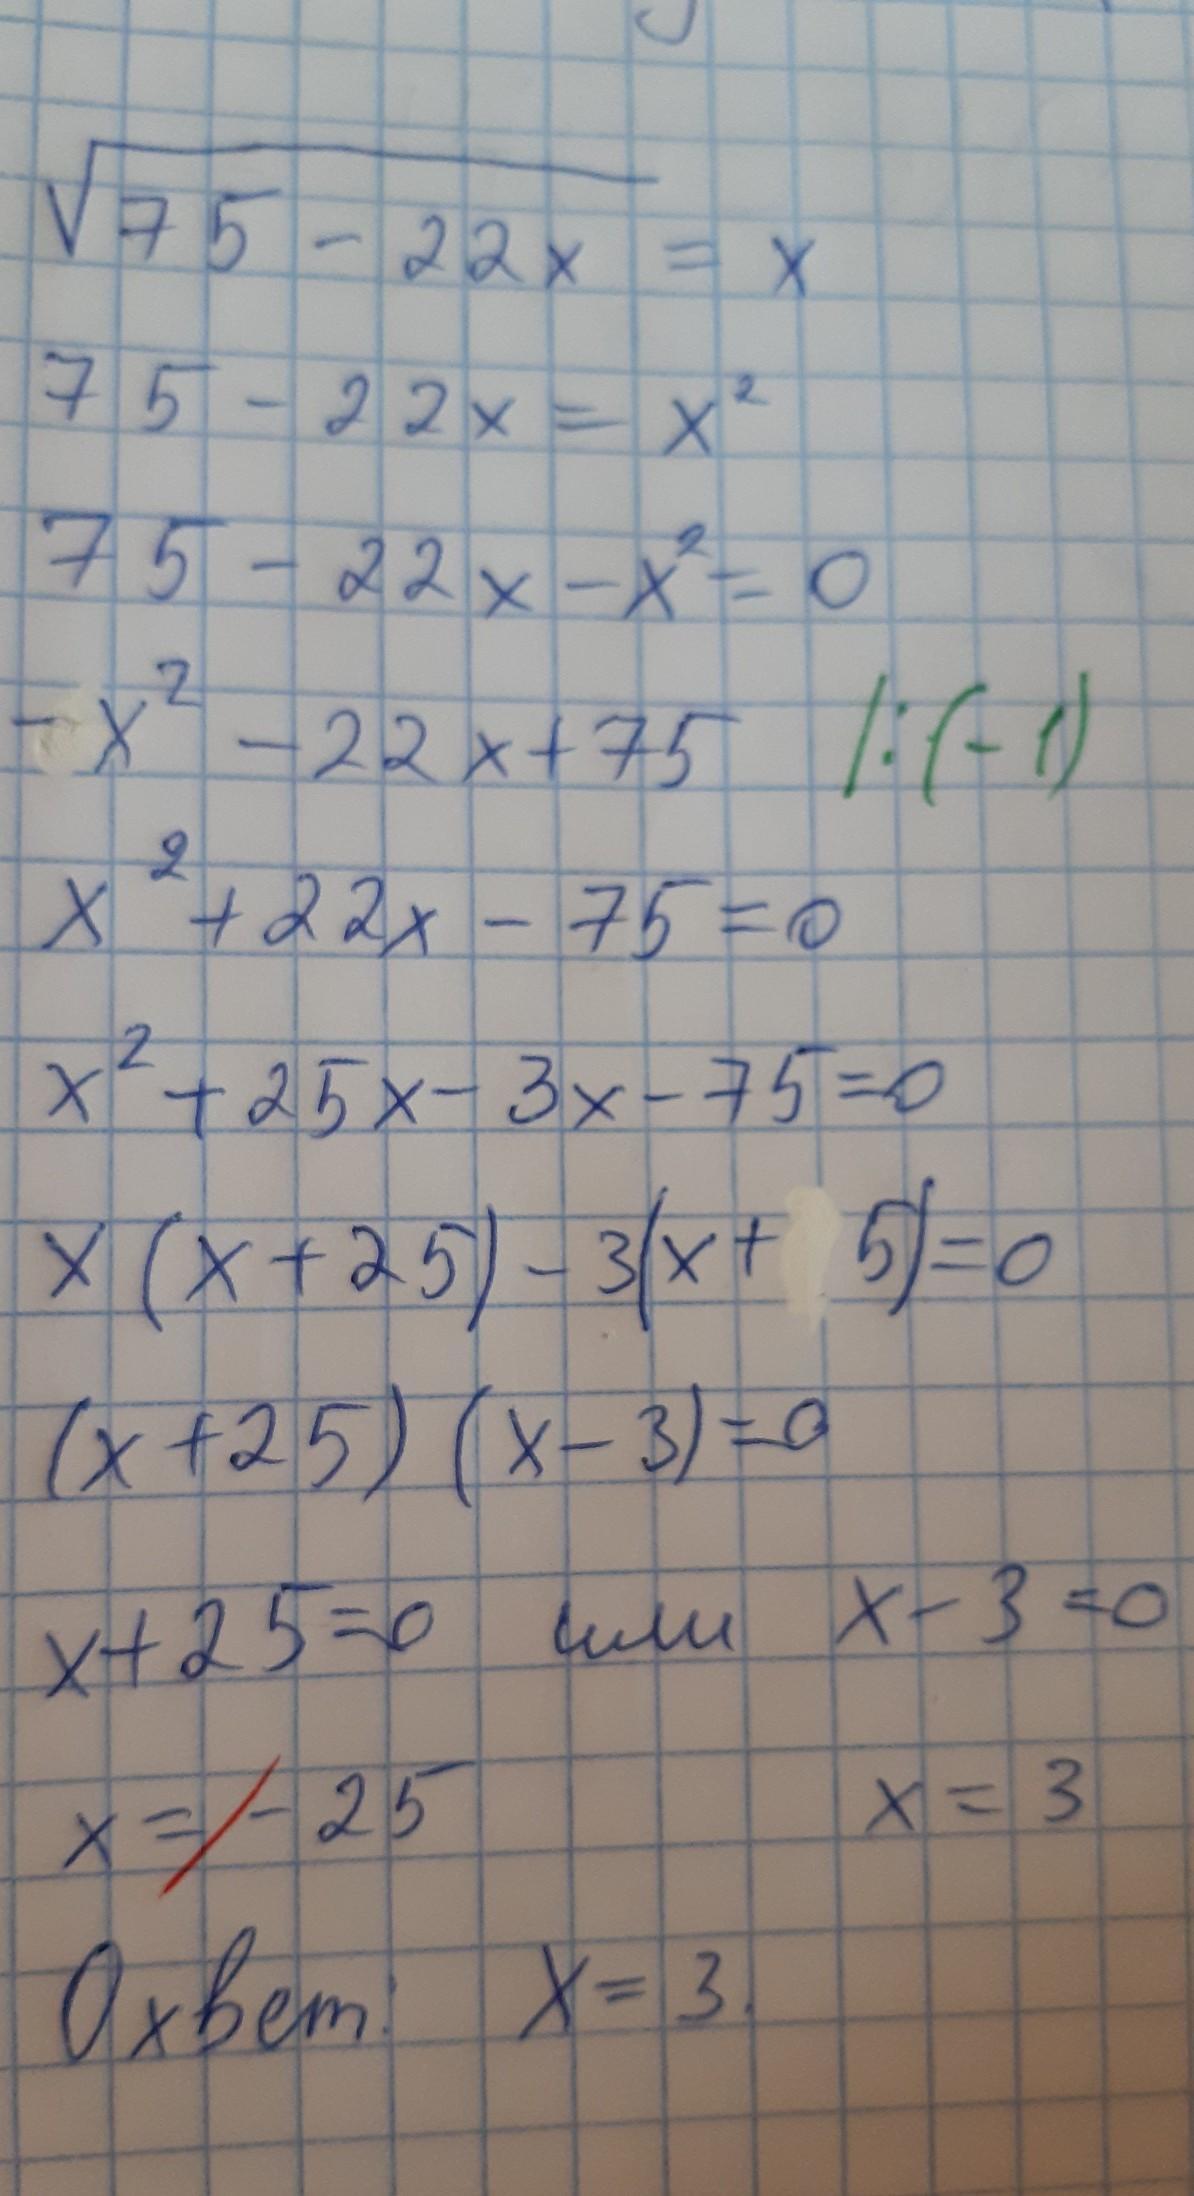 √75 - 22x = x
75 - 22x = x²
75 - 22x - x² = 0
- x² - 22x + 75 /:(-1)
x² + 22x - 75 = 0
x² + 25x - 3x - 75 = 0
x (x + 25) - 3(x + 5) = 0
(x + 25) (x - 3) = 0
x + 25 = 0 или x - 3 = 0
x = - 25 x = 3
Охвет: X = 3.